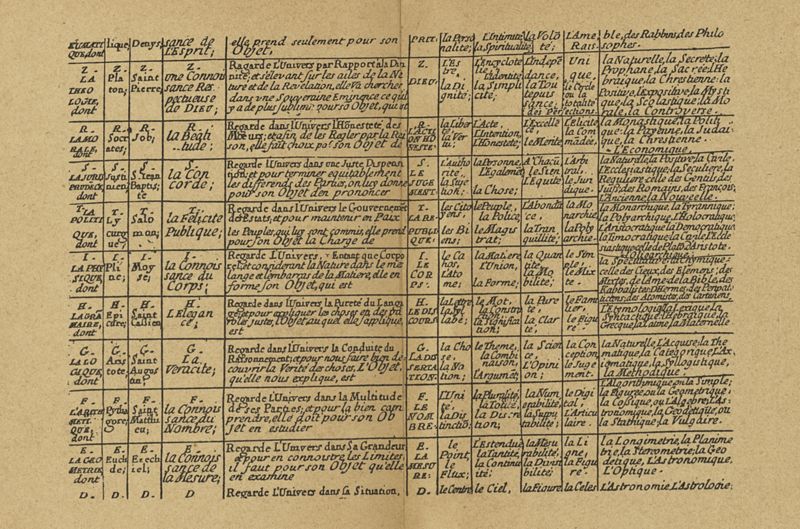 QUE, dont
lique,
Denys,
sance de
L'Esprit;
elle prend seulement pour son
Objet,
la Perso
nalité;
L'Intimité
la Spiritualité
la Volon
té;
L'Ame
Rais.
ble, des Rabbins, des Philo
sophes.
Z.
LA
THEO
LOGIE,
dont
Z.
Pla
ton;
Z.
Saint
Pierre;
Z.
une Connois
sance Res
pectueuse
de DIEU;
Regarde L'Univers par Rapport a la Divi
nité; et s'elevant sur les ailes de la Na
ture et de la Revelation, elle va chercher
dans une Souveraine Eminance ce qu'il
y a de plus sublime pour so Objet, qui est
Z.
DIEU.
L'Es
tre,
la Di
gnité;
L'Encyclope
die
L'Identité
la Simpli
cité;
L'Indepé
dance,
la Tou
te puis
sance;
Uni
que,
le Cercle
ou la
totalité
des Perfections.
la Naturelle, la Secrete, la
Prophane, la Sacrée, l'He
braique, la Chrestienne: la
Positive, l'Expositive, la Mysti
que, la Scolastique, la Mo
rale, la Controverse.
R.
LA MO
RALE,
dont
R.
Soc
rate;
R.
Job;
R.
la Beati
tude;
Regarde dans l'Univers l'Honesteté des
Mœurs; et afin de les Regler par la Rai
son, elle fait choix po' son Objet de
R.
L'ACTE
HON
ESTE.
la Liber
té,
la Ver
tu;
L'Acte,
L'Intention,
L'Honesteté;
L'Excellé
ce,
le Merite;
Felicité
la Com
mādée,
la Monastique, la Politi
que: la Payenne, la Judai
que, la Chrestienne.
L'Economique.
S.
dont
S.
Justi
nien;
S.
S. Jean
Baptis
te
S.
La Con
corde;
Regarde L'Univers dans une Juste Dispensa
tion; et pour terminer equitablement
les differends des Parties, on luy donne
pour son Objet d'en prononcer
S.
LE
JUGE
MENT.
L'autho
rité,
la Sujec
tion;
la Personne,
L'Egalemēt,
la Chose;
A Chacū
le Sien,
L'Equité
L'Arbi
tral,
le Juri
dique.
la Naturelle, la Positive, la Civile,
l'Ecclesiastique, la Seculiere, la
Reguliere; celle des Gentils, des
Juifs, des Romains, des François;
l'Ancienne, la Nouvelle.
T.
LA
POLITI
QUE, dont
T.
Ly
cur
gue;
T.
Salo
mon;
T.
la Felicité
Publique;
Regarde dans l'Univers le Gouvernemēt
des Estats; et pour maintenir en Paix
les Peuples, qui luy sont commis, elle prend
pour son Objet la Charge de
T.
LA RE
PUBLI
QUE:
les Cito
yens,
les Bi
ens;
le Peuple,
la Police,
le Magis
trat;
L'Abondā
ce,
la Tran
quillité;
la Mo
narchie
la Poly
archie.
la Monarchique, la Tyrannique;
la Polyarchique, l'Holocratique,
l'Aristocratique, la Democratique,
la Timocratique,
Oligarchique.
I.
LA PHI
SIQUE,
dont
I.
Pli
ne;
I.
Moy
se;
I.
la Connois
sance du
Corps;
Regarde L'Univers, Entant que Corps
et, et considerant la Nature dans le mé
lange et l'embaras de la Matiere, elle en
forme son Objet, qui est
I.
LE
COR
PS.
le Ca
hos,
l'Ato
me;
la Matiere,
L'Union,
la Forme;
la Quan
tité,
la Mo
bilité;
le Sim
ple,
le Mix
te.
celle des Cieux, des Elemens, des
Mixtes, de l'Ame, de la Bible, des
H.
LA GRA
MAIRE,
dont
H.
Epi
cdre;
H.
Saint
Cassien;
H.
L'Elegan
ce;
Regarde dans l'Univers la Pureté du Langa
ge; et pour expliquer les choses en des pa
roles justes, l'Objet auquel elle s'applique,
est
H.
LE DIS
COURS
la Lettre,
la Syl
labe;
le Mot,
la Constru
ction,
la Significa
tion;
la Pure
té,
la Clar
té;
le Fami
lier,
le Figu
ré.
L'Etymologique, la Lexique, la
Syntactique; l'Hebraique, la
Grecque, la Latine, la Maternelle
G.
LA LO
GIQUE,
dont
G.
Aris
tote;
G.
Saint
Augus
tin;
G.
La
Veracité;
Regarde dans l'Univers la Conduite du
Raisonnement; et pour nous faire bien de
couvrir la Verité des choses, L'Objet,
qu'elle nous explique, est
G.
LA DIS
SERTA
TION:
la Cho
se,
la No
tion;
le Theme,
la Combi
naison,
L'Argumēt;
la Scien
ce,
L'Opini
on;
la Con
ception,
le Juge
ment.
la Naturelle, L'Acquise: la The
matique, la Categorique, L'Ax
iomatique, la Syllogistique,
la Methodique.
F.
L'ARITH
METI
QUE,
dont
F.
Pytha
gore;
F.
Saint
Matthi
eu;
F.
la Connois
sance du
Nombre;
Regarde L'Univers dans la Multitude
de ses Parties; et pour la bien com
prendre, elle doit pour son Ob
jet en estudier
F.
LE
NOM
BRE.
L'Uni
té,
la Dis
tinctiō;
la Pluralité,
la Totalité,
la Divisi
on;
la Num
erabilité,
la Supu
tabilité;
le Digi
tal,
L'Arti
culaire.
L'Algorithmique, ou la Simple;
la Figurée, ou la Geometrique;
la Cossique, ou L'Algebre; L'As
tronomique, la Geodetique, ou
la Stathique, la Vulgaire.
E.
LA GEO
METRIE,
dont
E.
Eucli
de;
E.
Ezech
iel;
E.
la Connois
sance de
la Mesure;
Regarde L'Univers dans Sa Grandeur,
et pour en connoistre les Limites,
il faut pour son Objet qu'elle
en examine
E.
LA
MESU
RE:
le
Point,
le
Flux;
L'Estendue,
la Quantité,
la Continui
té;
la Mesu
rabilité,
la Divisi
bilité;
la Li
gne,
la Figu
re.
la Longimetrie, la Planime
trie, la Stereometrie, la Geo
detique, L'Astronomique,
L'Optique.
D.
D.
D.
D
Regarde L'Univers dans sa Situation,
D.
le Centre
le Ciel,
la Figure
la Celes
L'Astronomie, L'Astrologie;